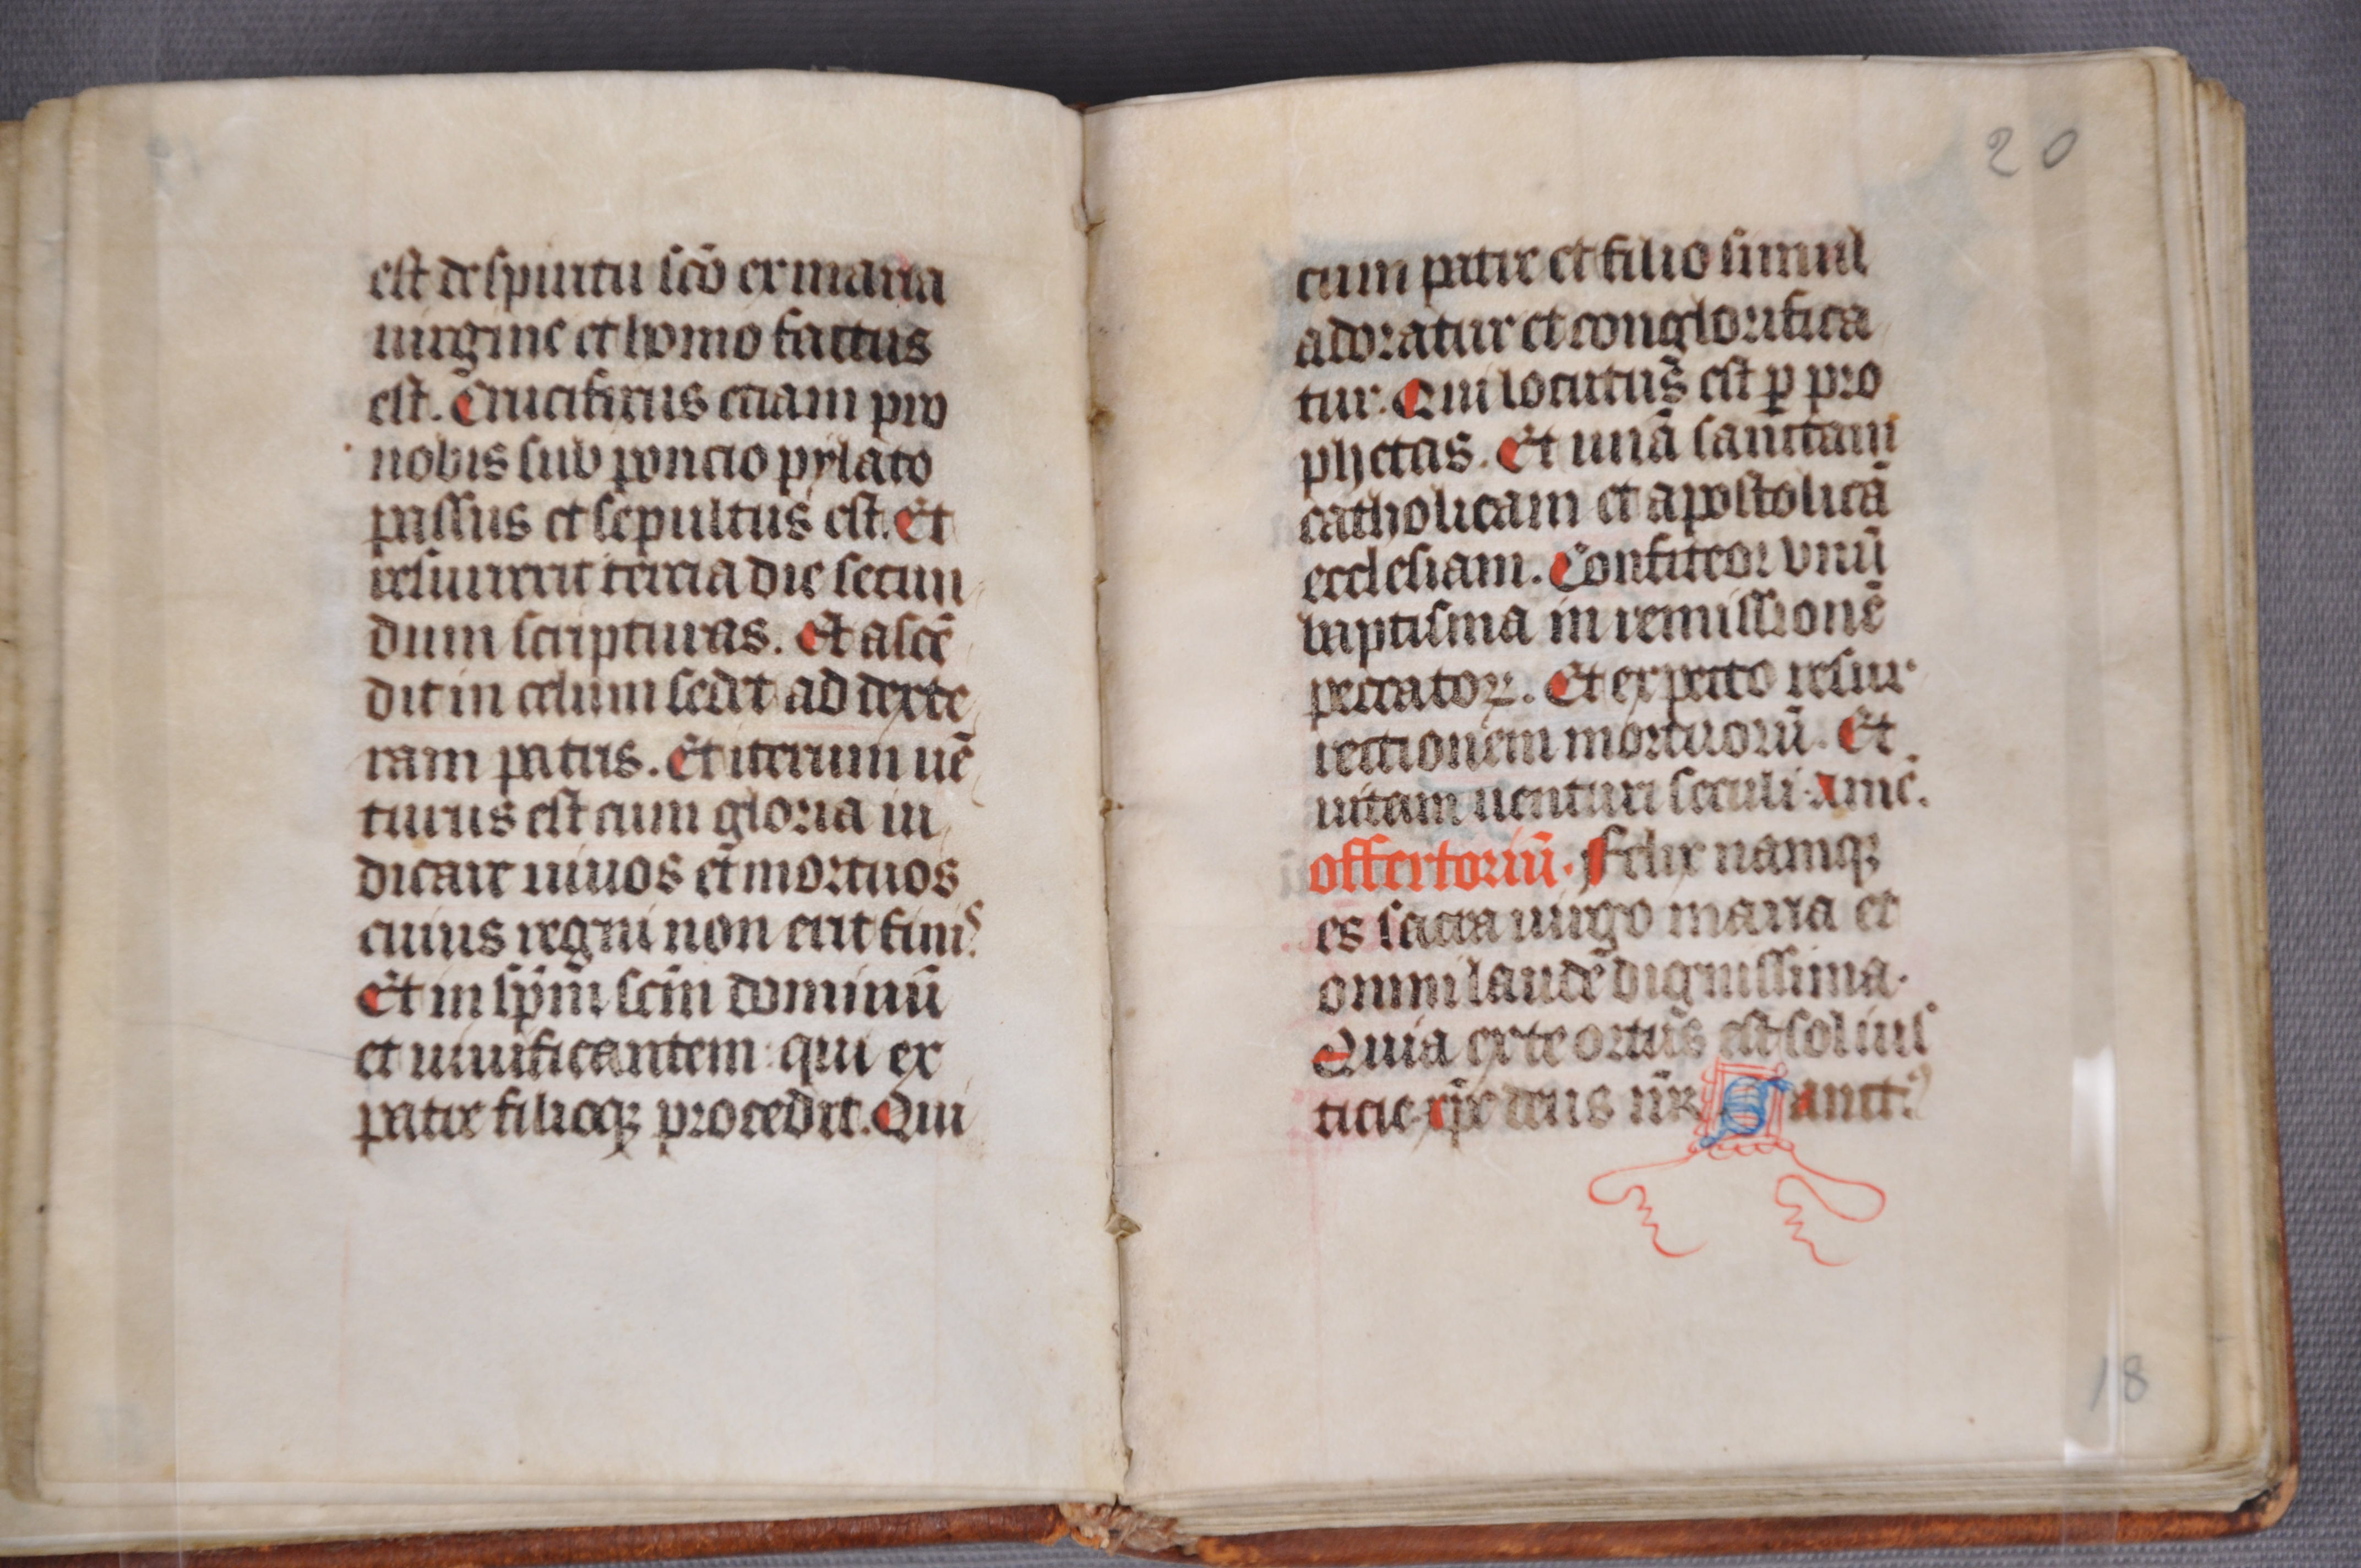 est de spiritu scō ex maria
uirgine et homo factus
est. Crucifixus etiam pro
nobis sub poncio pylato
passus et sepultus est. Et
resurrexit tercia die secun
dum scripturas. Et ascē
dit in celum sedet ad dexte
ram patris. Et iterum uē
turus est cum gloria iu
dicare uiuos et mortuos
cuius regni non erit finis
Et in sp̄m scm̄ dominū
et uiuificantem qui ex
patre filioqꝫ procedit. Qui
20
cum patre et filio simul
adoratur et conglorifica
tur. Qui locutus est ꝑ pro
phetas. Et unā sanctam
catholicam et apostolicā
ecclesiam. Confiteor vnū
baptisma in remissionē
peccatoꝝ. Et expecto resur
rectionem mortuorū. Et
uitam uenturi seculi. Amē.
offertoriū. Felix namqꝫ
es sacra uirgo maria et
omni laude dignissima.
Quia ex te ortus est sol ius
ticie xp̄c deus nr̄ Sanctꝰ
18